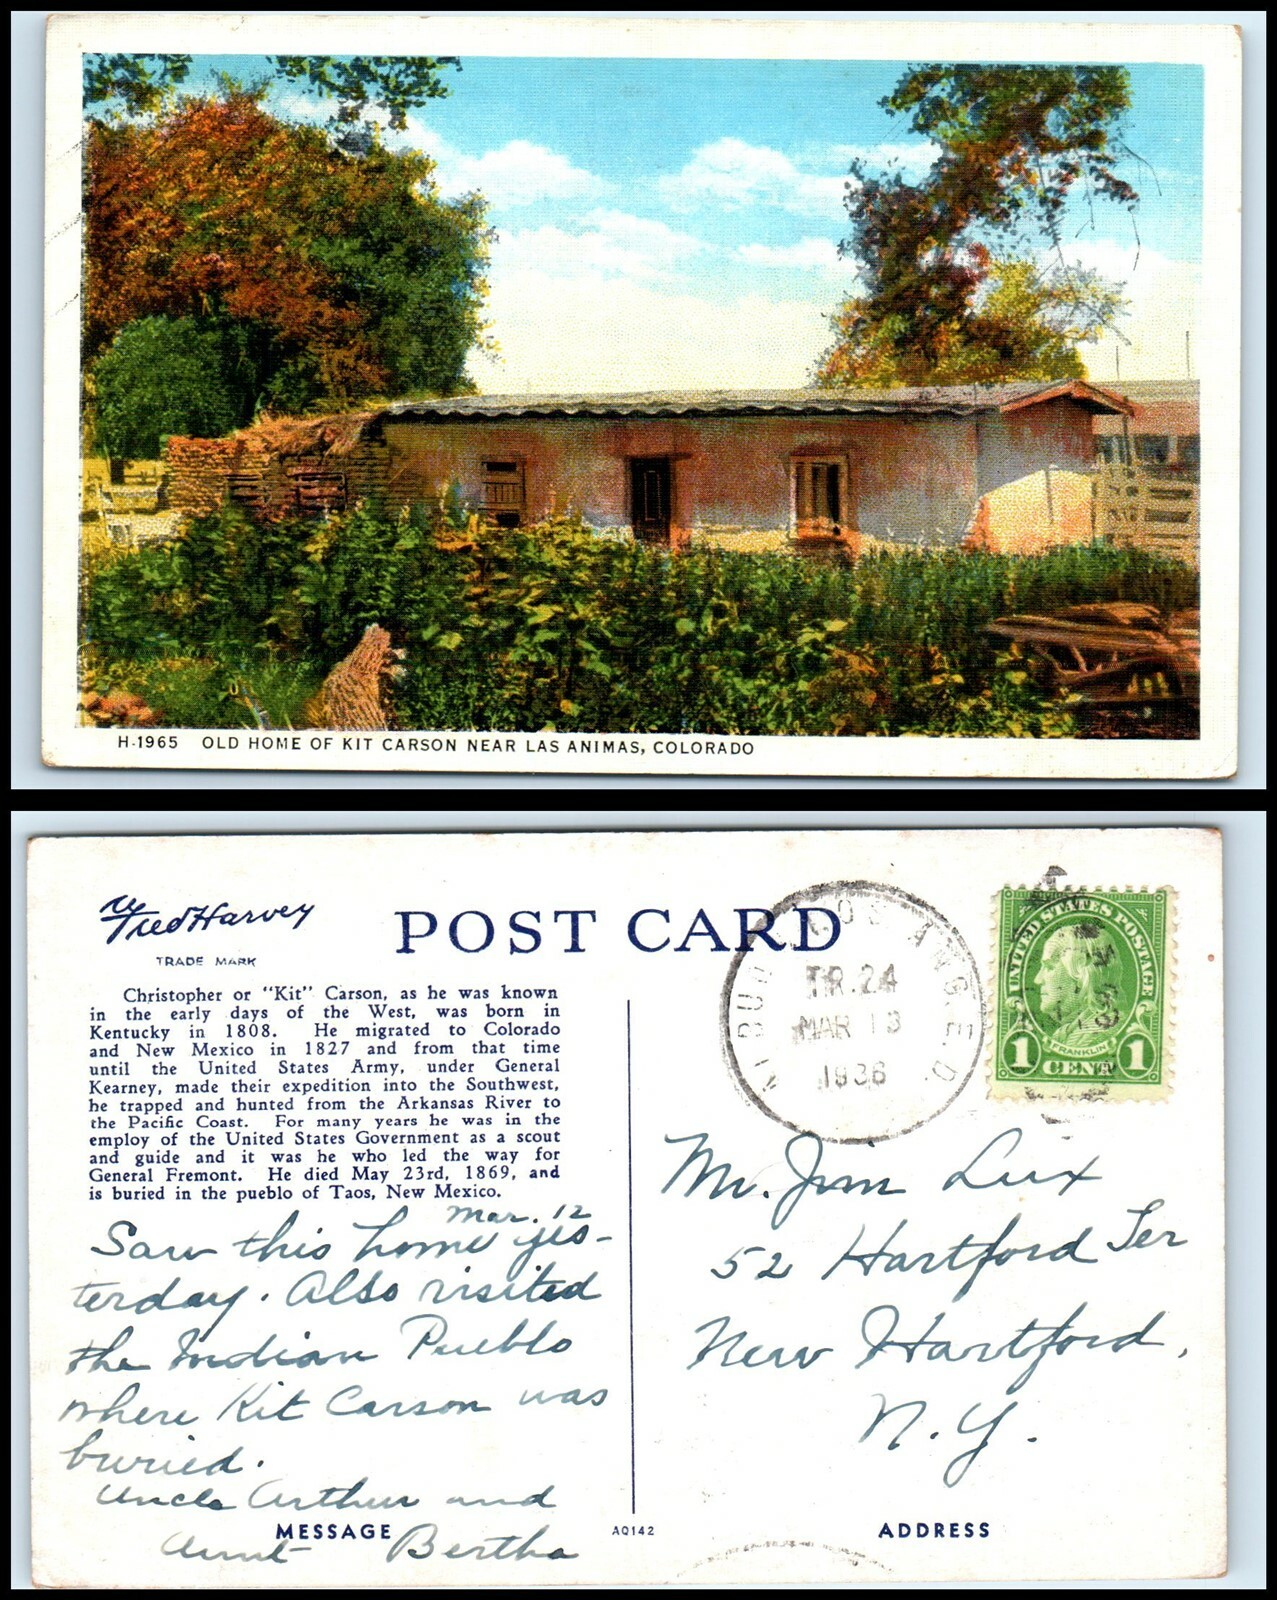 H-1965 OLD HOME OF KIT CARSON NEAR LAS ANIMAS, COLORADO
Fred Harvey
TRADE MARK
POST CARD
Christopher or "Kit" Carson, as he was known
in the early days of the West, was born in
Kentucky in 1808. He migrated to Colorado
and New Mexico in 1827 and from that time
until the United States Army, under General
Kearney, made their expedition into the Southwest,
he trapped and hunted from the Arkansas River to
the Pacific Coast. For many years he was in the
employ of the United States Government as a scout
and guide and it was he who led the way for
General Fremont. He died May 23rd, 1869, and
is buried in the pueblo of Taos, New Mexico.
Mar. 12
Saw this home yes-
terday. Also visited
the Indian Pueblo
where Kit Carson was
buried.
Uncle Arthur and
Aunt Bertha
MESSAGE
AQ142
LOS ANG
TR.24
MAR 13
1936
UNITED STATES POSTAGE
FRANKLIN
1 CENT 1
Mr. Jim Lux
52 Hartford Ter
New Hartford,
N.Y.
ADDRESS